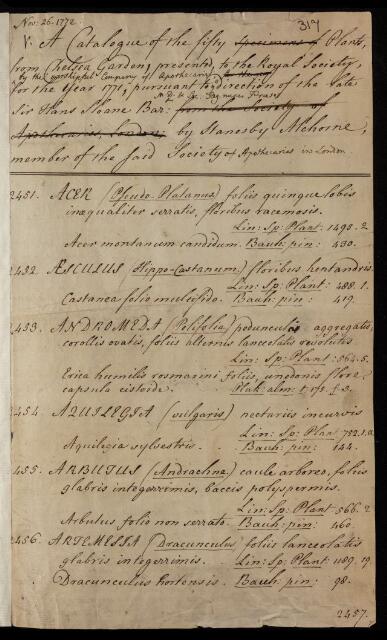 Nov: 26. 1772
317
V. A Catalogue of the fifty Specimens of Plants,
from Chelsea Garden, presented to the Royal Society,
by the worshipful Company of Apothecaries
for the Year 1771, pursuant to direction of the late
Sir Hans Sloane Bar: from the Society of
Apothecaries, London by Stanesby Alchorne,
member of the said Society of Apothecaries in London
2451. ACER (Pseudo-Platanus) foliis quinque lobis
inæqualiter serratis, floribus racemosis.
Lin: Sp: Plant: 1495. 2
Acer montanum candidum. Bauh: pin: 430.
2452. ÆSCULUS (Hippo-Castanum) floribus heptandris
Lin: Sp: Plant: 488. 1.
Castanea folio multifido. Bauh: pin: 419.
2453. ANDROMEDA (Polifolia) pedunculis aggregatis,
corollis ovatis, foliis alternis lanceolatis revolutis
Lin: Sp: Plant: 564. 5.
Erica humilis rosmarini foliis, unedonis flore
capsula cistoide. Pluk: alm:
2454 AQUILEGIA (vulgaris) nectariis incurvis
Lin: Sp: Plan 752. 1. a
Aquilegia sylvestris. Bauh: pin: 144.
2455. ARBUTUS (Andrachne) caule arboreo, foliis
glabris integerrimis, baccis polyspermis.
Lin: Sp: Plant 566. 2
Arbutus folio non serrato. Bauh: pin: 460.
2456. ARTEMISIA (Dracunculus) foliis lanceolatis
glabris integerrimis. Lin: Sp: Plant 1189. 19
Dracunculus hortensis. Bauh: pin: 98.
2457.